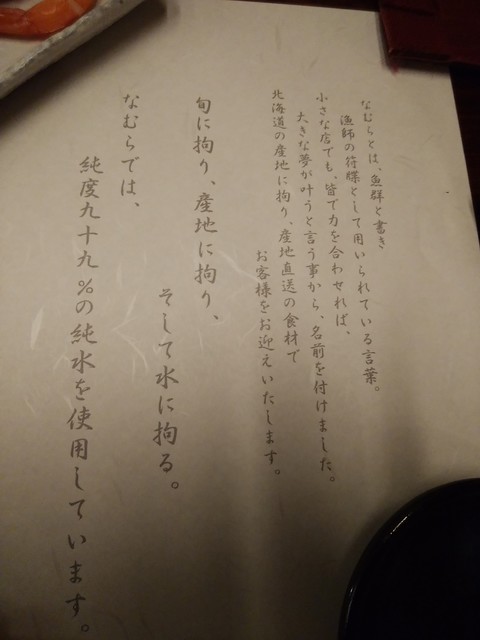 なむらとは、魚群と書き
漁師の符牒として用いられている言葉。
小さな店でも、皆で力を合わせれば、
大きな夢が叶うと言う事から、名前を付けました。
北海道の産地に拘り、産地直送の食材で
お客様をお迎えいたします。
旬に拘り、産地に拘り、
そして水に拘る。
なむらでは、
純度九十九%の純水を使用しています。